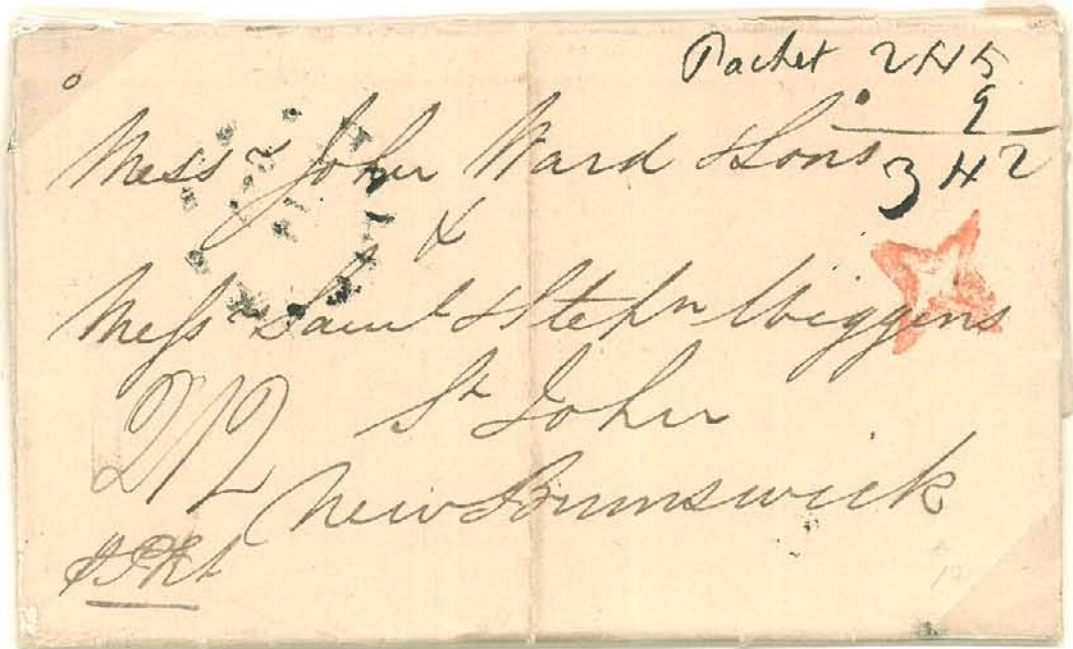 Packet 2/5
9
3/2
Messrs John Ward & Sons
&
Messrs Saml & Stephn Wiggins
2/2
St John
New Brunswick
Pkt